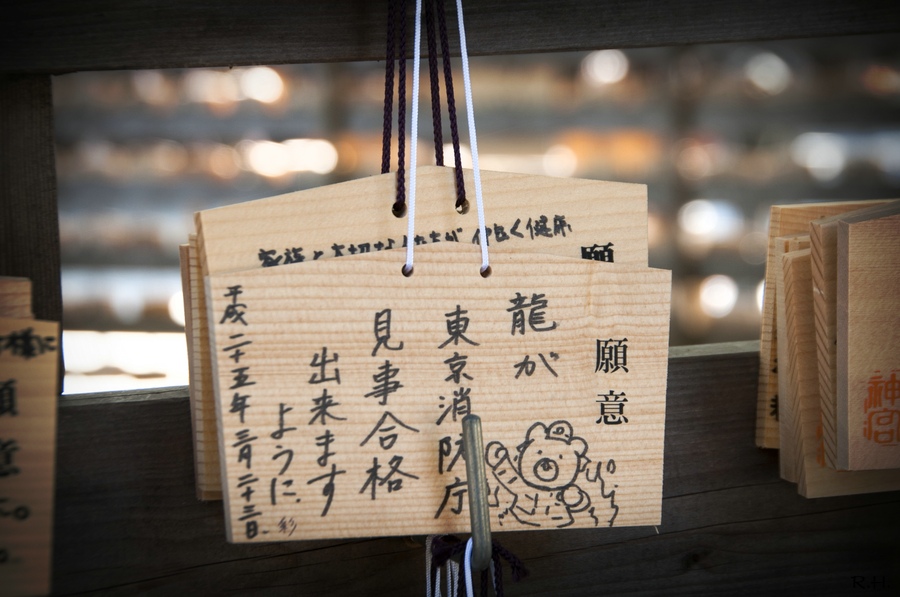 願意
龍が
東京消防庁
見事合格
出来ます
ように。
彩
平成二十五年三月二十三日。
願
家族と大切な
仲良く健康
神宮
R.H